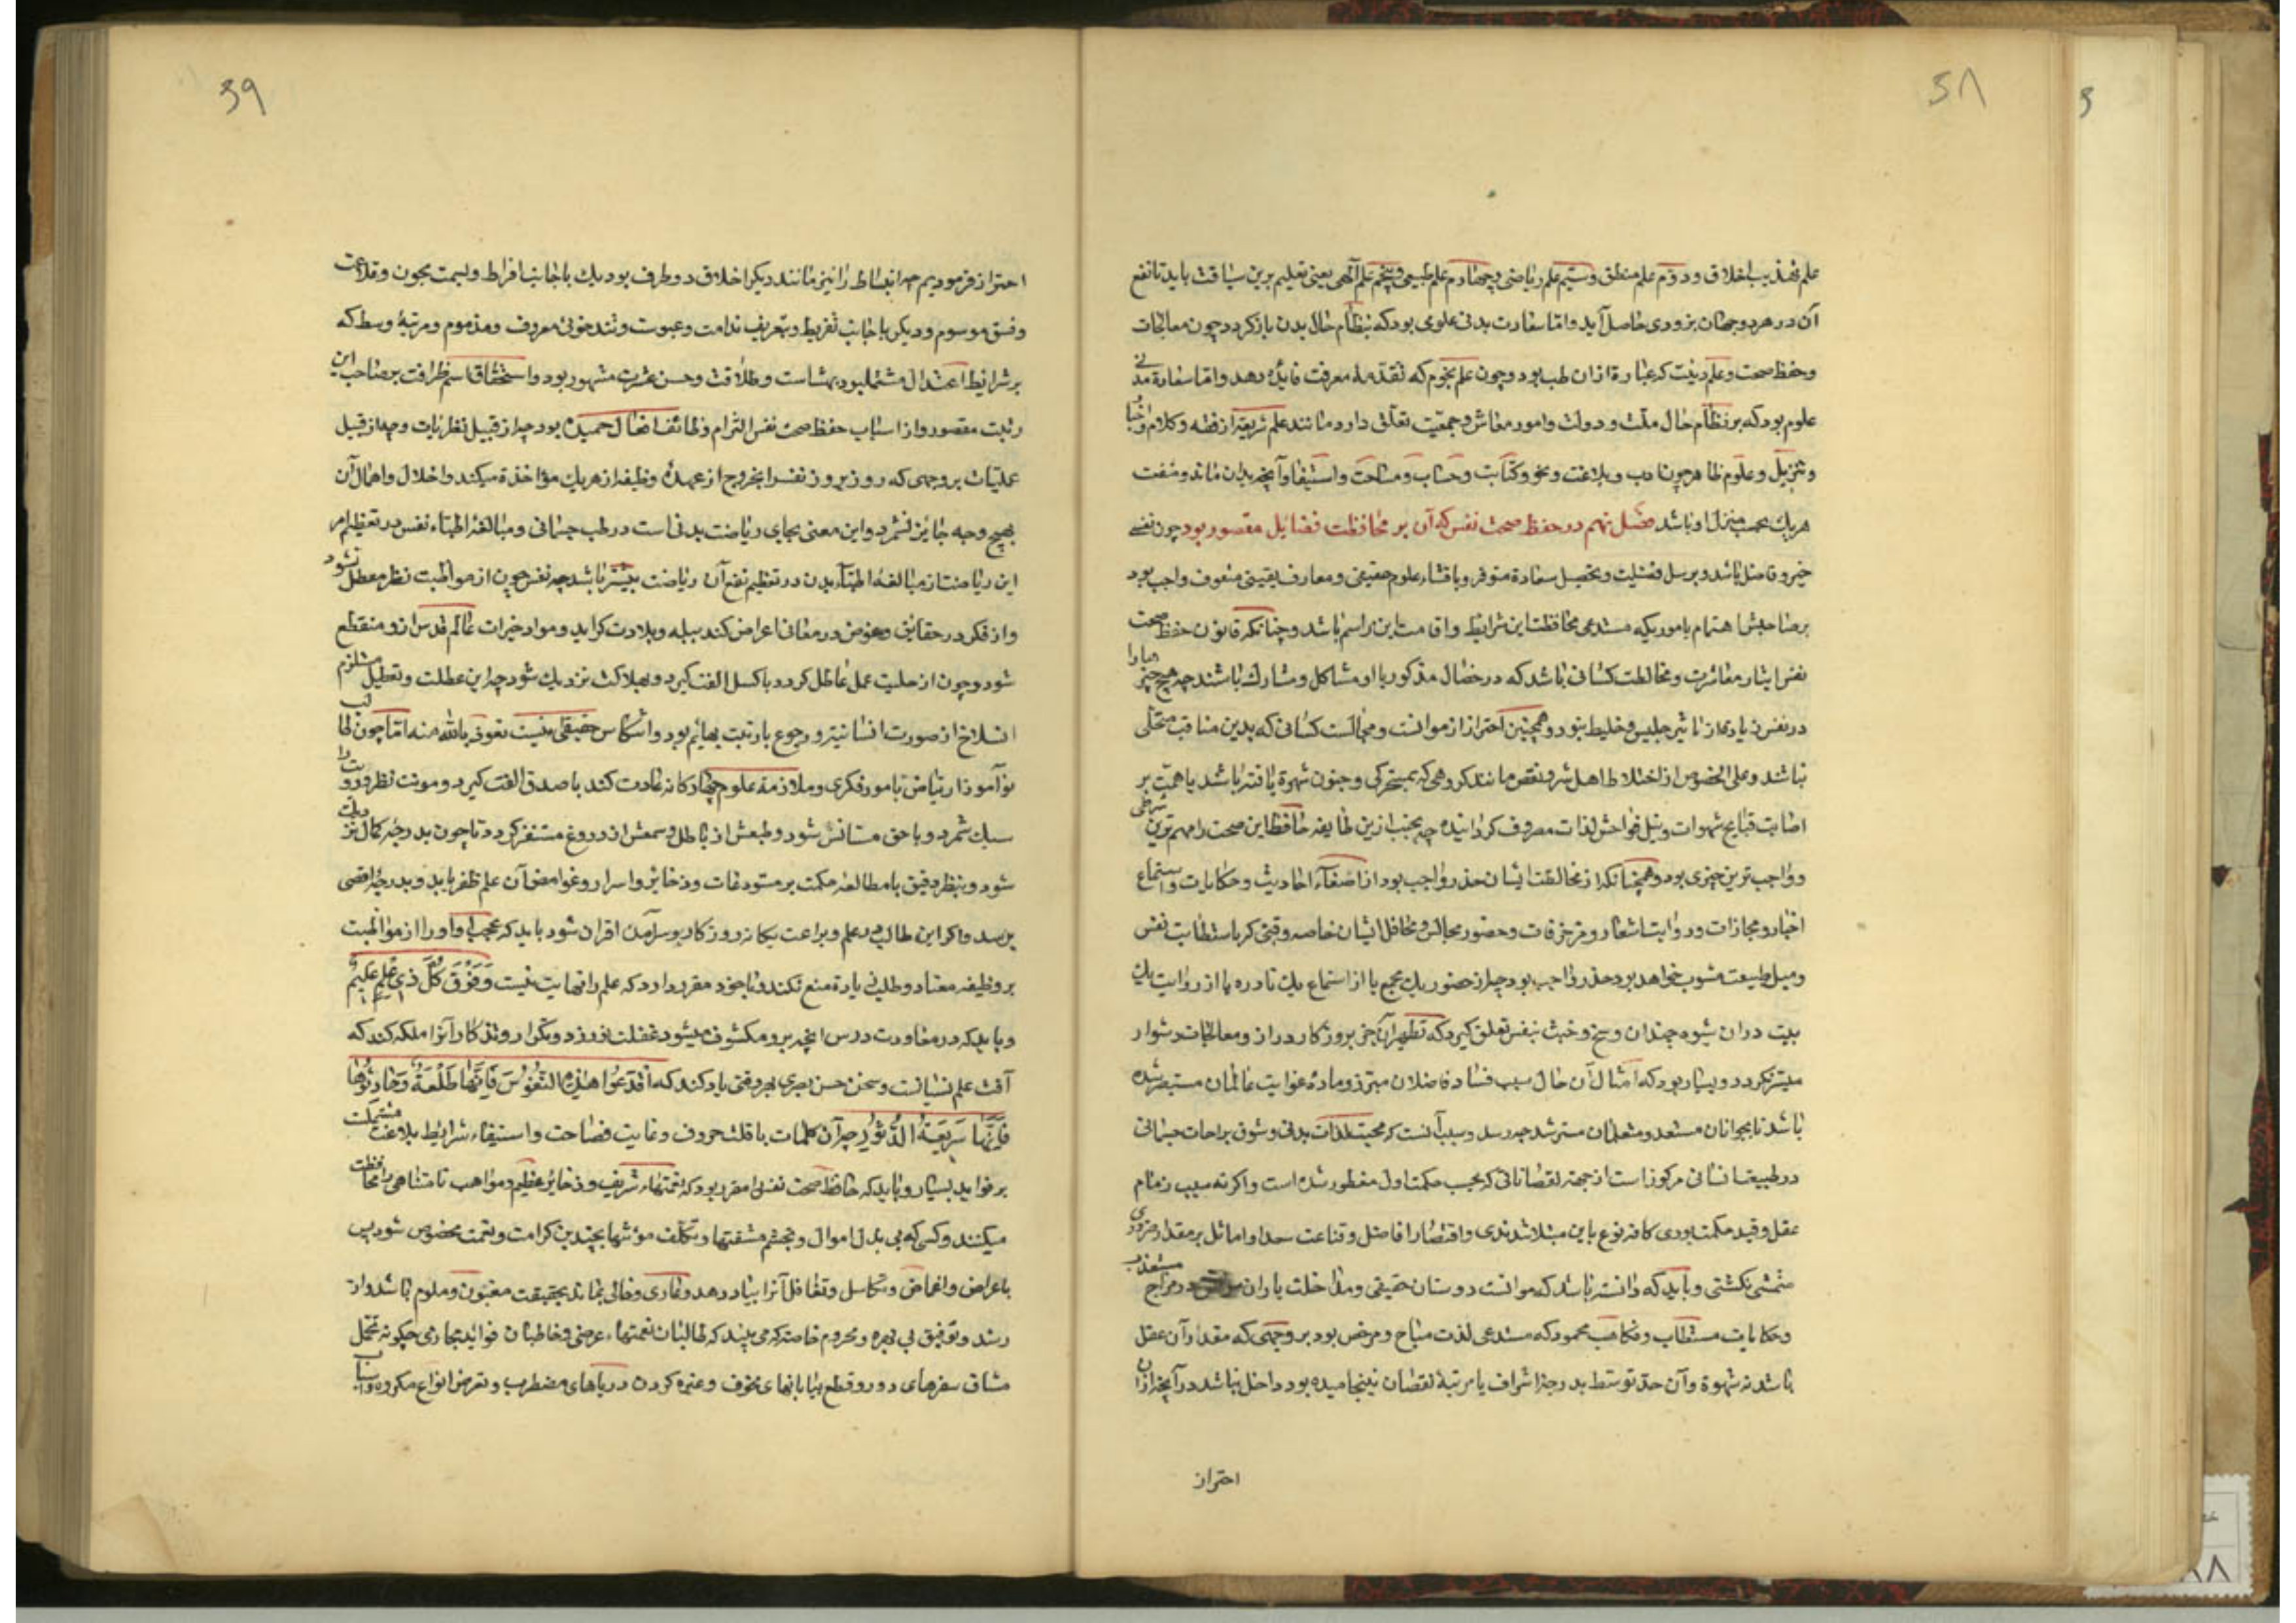 ۳۸
علم تهذیب اخلاق و دوّم علم منطق و سیّم علم ریاضی و چهارم علم طبیعی و پنجم علم آلهی یعنی تعلیم برین سیاقت باید تا نفع
آن در هر دو جهان بزودی حاصل آید و اما سعادت بدنی علومی بود که بنظام حال بدن بازگردد چون معالجات
و حفظ صحت و علم زینت که عبارة از ان طب بود و چون علم نجوم که تقدمهٔ معرفت فایده دهد و اما سعادة مدنی
علوم بود که بر نظام حال ملت و دولت و امور معاش و جمعیت تعلق دارد مانند علم شریعة از فقه و کلام و اخبار
و تنزیل و علوم ظاهر چون ادب و بلاغت و نحو و کتابت و حساب و مساحت و استیفا و آنچه بدان ماند و منفعت
هر یک بحسب منزل او باشد فصل نهم در حفظ صحت نفس که آن بر محافظت فضایل مقصور بود چون نفس
خیر و فاضل باشد و بر نیل فضیلت و تحصیل سعادة متوفر و باقتناء علوم حقیقی و معارف یقینی مشعوف واجب بود
بر صاحبش اهتمام باموریکه مستدعی محافظت این شرایط و اقامت این مراسم باشد و چنانکه قانون حفظ صحت
نفس ایثار معاشرت و مخالطت کسانی باشد که در خصال مذکور با او مشاکل و مشارک باشند چه هیچ چیز را
در نفس زیاده از تاثیر جلیس و خلیط نبود و همچنین احتراز از موانست و مجالست کسانی که بدین مناقب متحلی
نباشند و علی الخصوص از اختلاط اهل شر و نقص مانند گروهی که بمسخرگی و مجون شهرة یافته باشند یا همت بر
اصابت قبایح شهوات و نیل فواحش لذات مصروف گردانیده چه تجنب ازین طایفه حافظ این صحت را مهم ترین شرطی
و واجب ترین چیزی بود و همچنانکه از مخالطت ایشان حذر واجب بود از اصغاء احادیث و حکایات و استماع
اخبار و مجازات و روایت اشعار و مزخرفات و حضور مجالس و محافل ایشان خاصه وقتی که باستطابت نفس
و میل طبیعت مشوب خواهد بود حذر واجب بود چه از حضور یک مجمع یا از استماع یک نادره یا از روایت یک
بیت در ان شیوه چندان وسخ و خبث بنفس تعلق گیرد که تطهیر آن جز بروزگار دراز و معالجات دشوار
میسر نگردد و بسیار بود که امثال آن حال سبب فساد فاضلان مبرز و مادهٔ غوایت عالمان مستبصر شده
باشد تا بجوانان مستعد و متعلمان مسترشد چه رسد و سبب آنست که محبت لذات بدنی و شوق براحات جسمانی
در طبیعت انسانی مرکوز است از جهة نقصاناتی که بحسب حکمت اول مفطور شده است و اگر نه سبب زمام
عقل و قید حکمت بودی کافهٔ نوع باین مبتلا شدندی و اقتصار افاضل و قناعت سعدا و اماثل بر مقدار ضروری
متمشی نگشتی و باید که دانسته باشد که موانست دوستان حقیقی و مداخلت یاران در مزاح مستعذب
و حکایات مستطاب و فکاهت محمود که مستدعی لذت مباح و مرخص بود بر وجهی که مقدار آن عقل
باشد نه شهوة و آن حد توسط بدرجهٔ اشراف یا مرتبهٔ نقصان نینجامیده بود داخل نباشد در آنچه از ان
احتراز
۳۹
احتراز فرمودیم چه انبساط را نیز مانند دیگر اخلاق دو طرف بود یک با جانب افراط و بسمت مجون و خلاعت
و فسق موسوم و دیگر با جانب تفریط و بتعریف ندامت و عبوست و تندخوئی معروف و مذموم و مرتبهٔ وسط که
بر شرایط اعتدال مشتمل بود بهشاشت و طلاقت و حسن عشرت مشهور بود و استحقاق اسم ظرافت بر صاحب این
رتبت مقصور و از اسباب حفظ صحت نفس التزام وظائف افعال حمیده بود چه از قبیل نظریات و چه از قبیل
عملیات بر وجهی که روز بروز نفس را بخروج از عهدهٔ وظیفه از هر یک مؤاخذة میکند و اخلال و اهمال آن
بهیچ وجه جائز نشمرد و این معنی بجای ریاضت بدنی است در طب جسمانی و مبالغهٔ اطباء نفس در تعظیم امر
این ریاضت از مبالغهٔ اطباء بدن در تعظیم نفع آن ریاضت بیشتر باشد چه نفس چون از مواظبت نظر معطل شود
و از فکر در حقایق و غوص در معانی اعراض کند ببله و بلادت گراید و مواد خیرات عالم قدس ازو منقطع
شود و چون از حلیت عمل عاطل گردد با کسل الفت گیرد و بهلاکت نزدیک شود چه این عطلت و تعطیل مستلزم
انسلاخ از صورت انسانیت و رجوع با رتبت بهایم بود و انتکاس حقیقی اینست نعوذ بالله منه اما چون طالب
نوآموز ارتیاض بامور فکری و ملازمة علوم چهارگانه عادت کند با صدق الفت گیرد و مونت نظر و رویت را
سبک شمرد و با حق مستانس شود و طبعش از باطل و سمعش از دروغ مستنفر گردد تا چون بدرجهٔ کمال نزدیک
شود و بنظر دقیق بامطالعهٔ حکمت بر مستودعات و ذخایر و اسرار و غوامض آن علم ظفر یابد و بدرجهٔ اقصی
برسد و اگر این طالب در علم و براعت یگانهٔ روزگار و برآمدهٔ اقران شود باید که عجب او را از مواظبت
بر وظیفهٔ معتاد و طلب زیادة منع نکند و با خود مقرر دارد که علم را نهایت نیست وَفَوْقَ كُلِّ ذي عِلمٍ عَليمٌ
و باید که در معاودت درس آنچه برو مکشوف میشود غفلت نورزد و بتکرار و تذکار آنرا ملکه کند که
آفت علم نسیانست و سخن حسن بصری بهر وقتی یاد کند که اقْدَعُوا هٰذِهِ النُّفُوسَ فَاِنَّهَا طُلَعَةٌ وَحَادِثُوهَا
فَاِنَّهَا سَرِيعَةُ الدُّثُورِ چه آن کلمات باقلت حروف و غایت فصاحت و استیفاء شرایط بلاغت مشتملست
بر فواید بسیار و باید که حافظ صحت نفس را مقرر بود که نعمتهاء شریف و ذخائر عظیم و مواهب نامتناهی را محافظت
میکنند و کسی که بی بذل اموال و تجشم مشقتها و تکلف مؤنتها بچندین کرامت و نعمت مخصوص شود پس
باعراض و اغماض و تکاسل و تغافل آنرا بباد دهد و عاری و خالی بماند بحقیقت مغبون و ملوم باشد و از
رشد و توفیق بی بهره و محروم خاصه که می بیند که طالبان نعمتهاء عرضی و خاطبان فواید مجازی چگونه تحمل
مشاق سفرهای دور و قطع بیابانهای مخوف و عبره کردن دریاهای مضطرب و تعرض انواع مکروه و اسباب